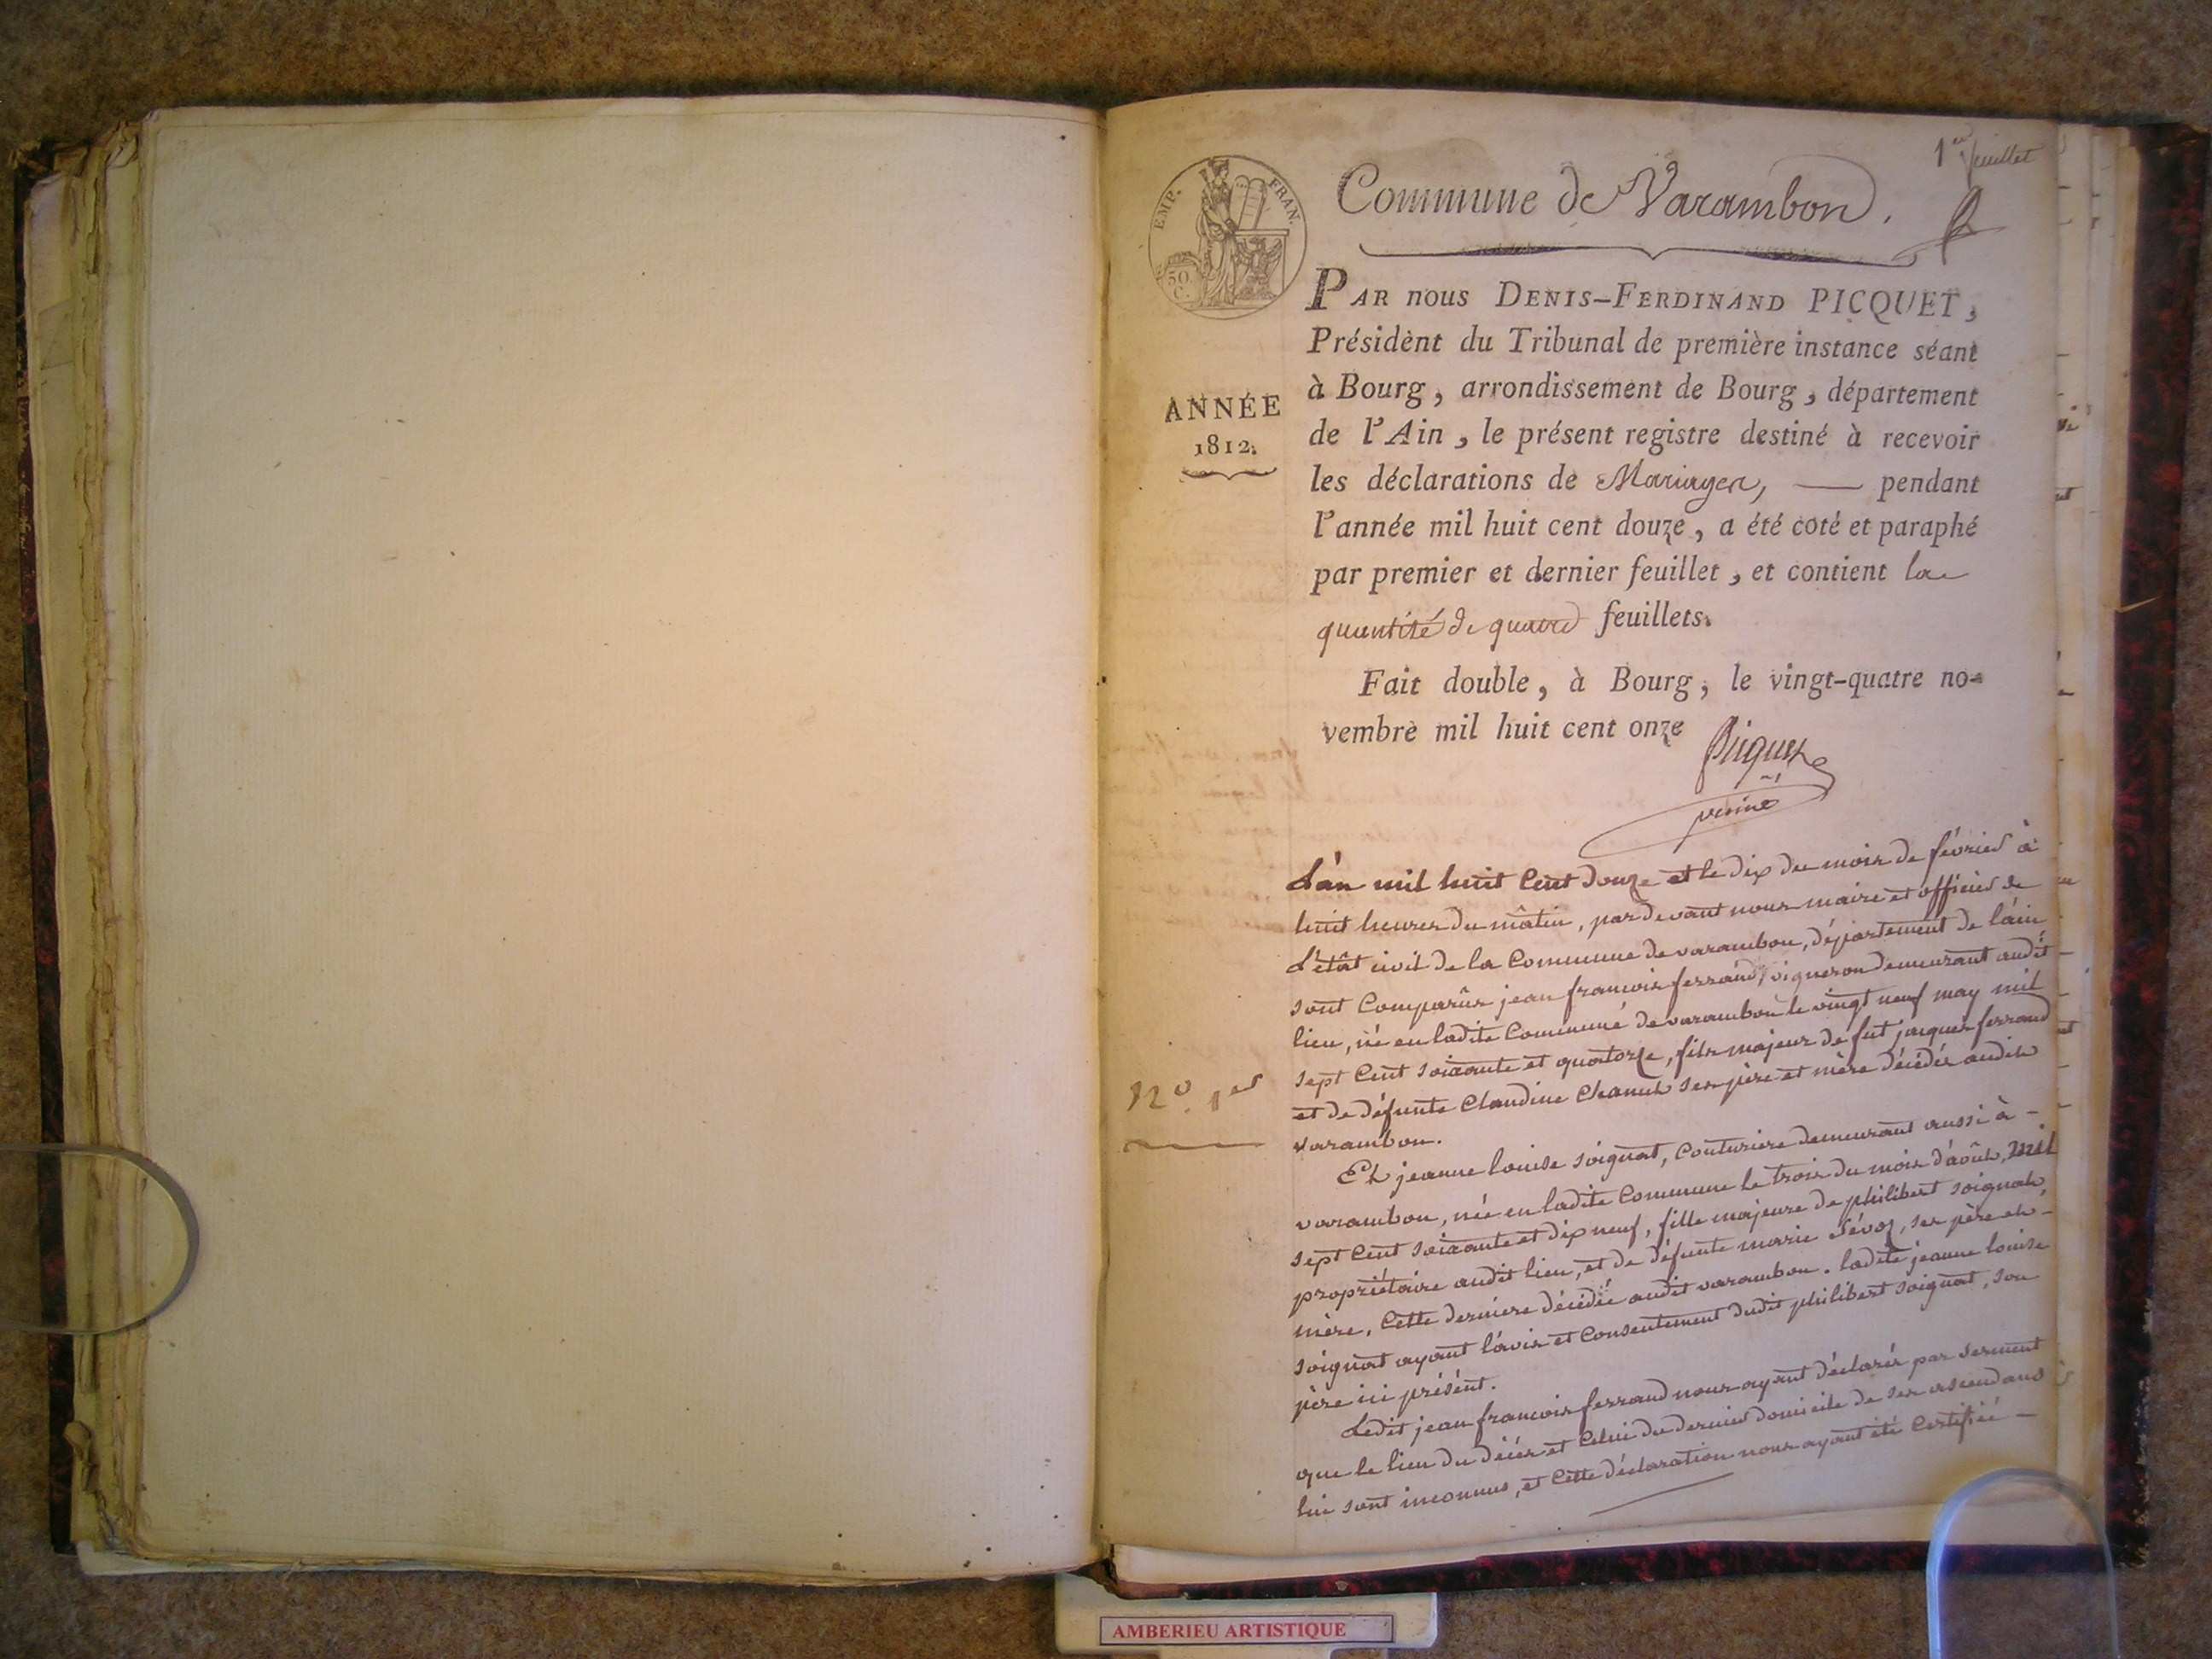 1er feuillet
EMP. FRAN.
50 C.
Commune de Varambon.
PAR nous DENIS-FERDINAND PICQUET,
Présidènt du Tribunal de première instance séant
à Bourg, arrondissement de Bourg, département
de l'Ain, le présent registre destiné à recevoir
les déclarations de Mariages, — pendant
l'année mil huit cent douze, a été coté et paraphé
par premier et dernier feuillet, et contient la
quantité de quatre feuillets.
Fait double, à Bourg, le vingt-quatre no-
vembre mil huit cent onze
ANNÉE
1812.
Picquet
L'àn mil huit Cent douze et le dix du mois de février à
huit heures du mâtin, pardevant nous maire et officier de
L'étât civil de la Commune de varambon, département de l'àin,
sont Comparûs jean francois ferrand, vigneron demeurant audit
lieu, né en ladite Commune de varambon le vingt neuf may mil
sept Cent soixante et quatorze, fils majeur de fut jacques ferrand
et de défunte Claudine Chanut ses père et mère décédés audit
varambon.
N.o 1er
Et jeanne louise soignat, Couturiere demeurant aussi à -
varambon, née en ladite Commune le trois du mois d'août, mil
sept Cent soixante et dix neuf, fille majeure de philibert soignat
propriétaire audit lieu, et de défunte marie sévoz, ses père et -
mère, Cette derniere décédée audit varambon. ladite jeanne louise
soignat ayant l'àvis et Consentement dudit philibert soignat, son
père ici présént.
Ledit jean francois ferrand nous ayant déclarés par serment
que le lieu du décés et Celui du dernier domicile de ses ascendans
lui sont inconnus, et Cette déclaration nous ayant été Certifiée —
AMBERIEU ARTISTIQUE